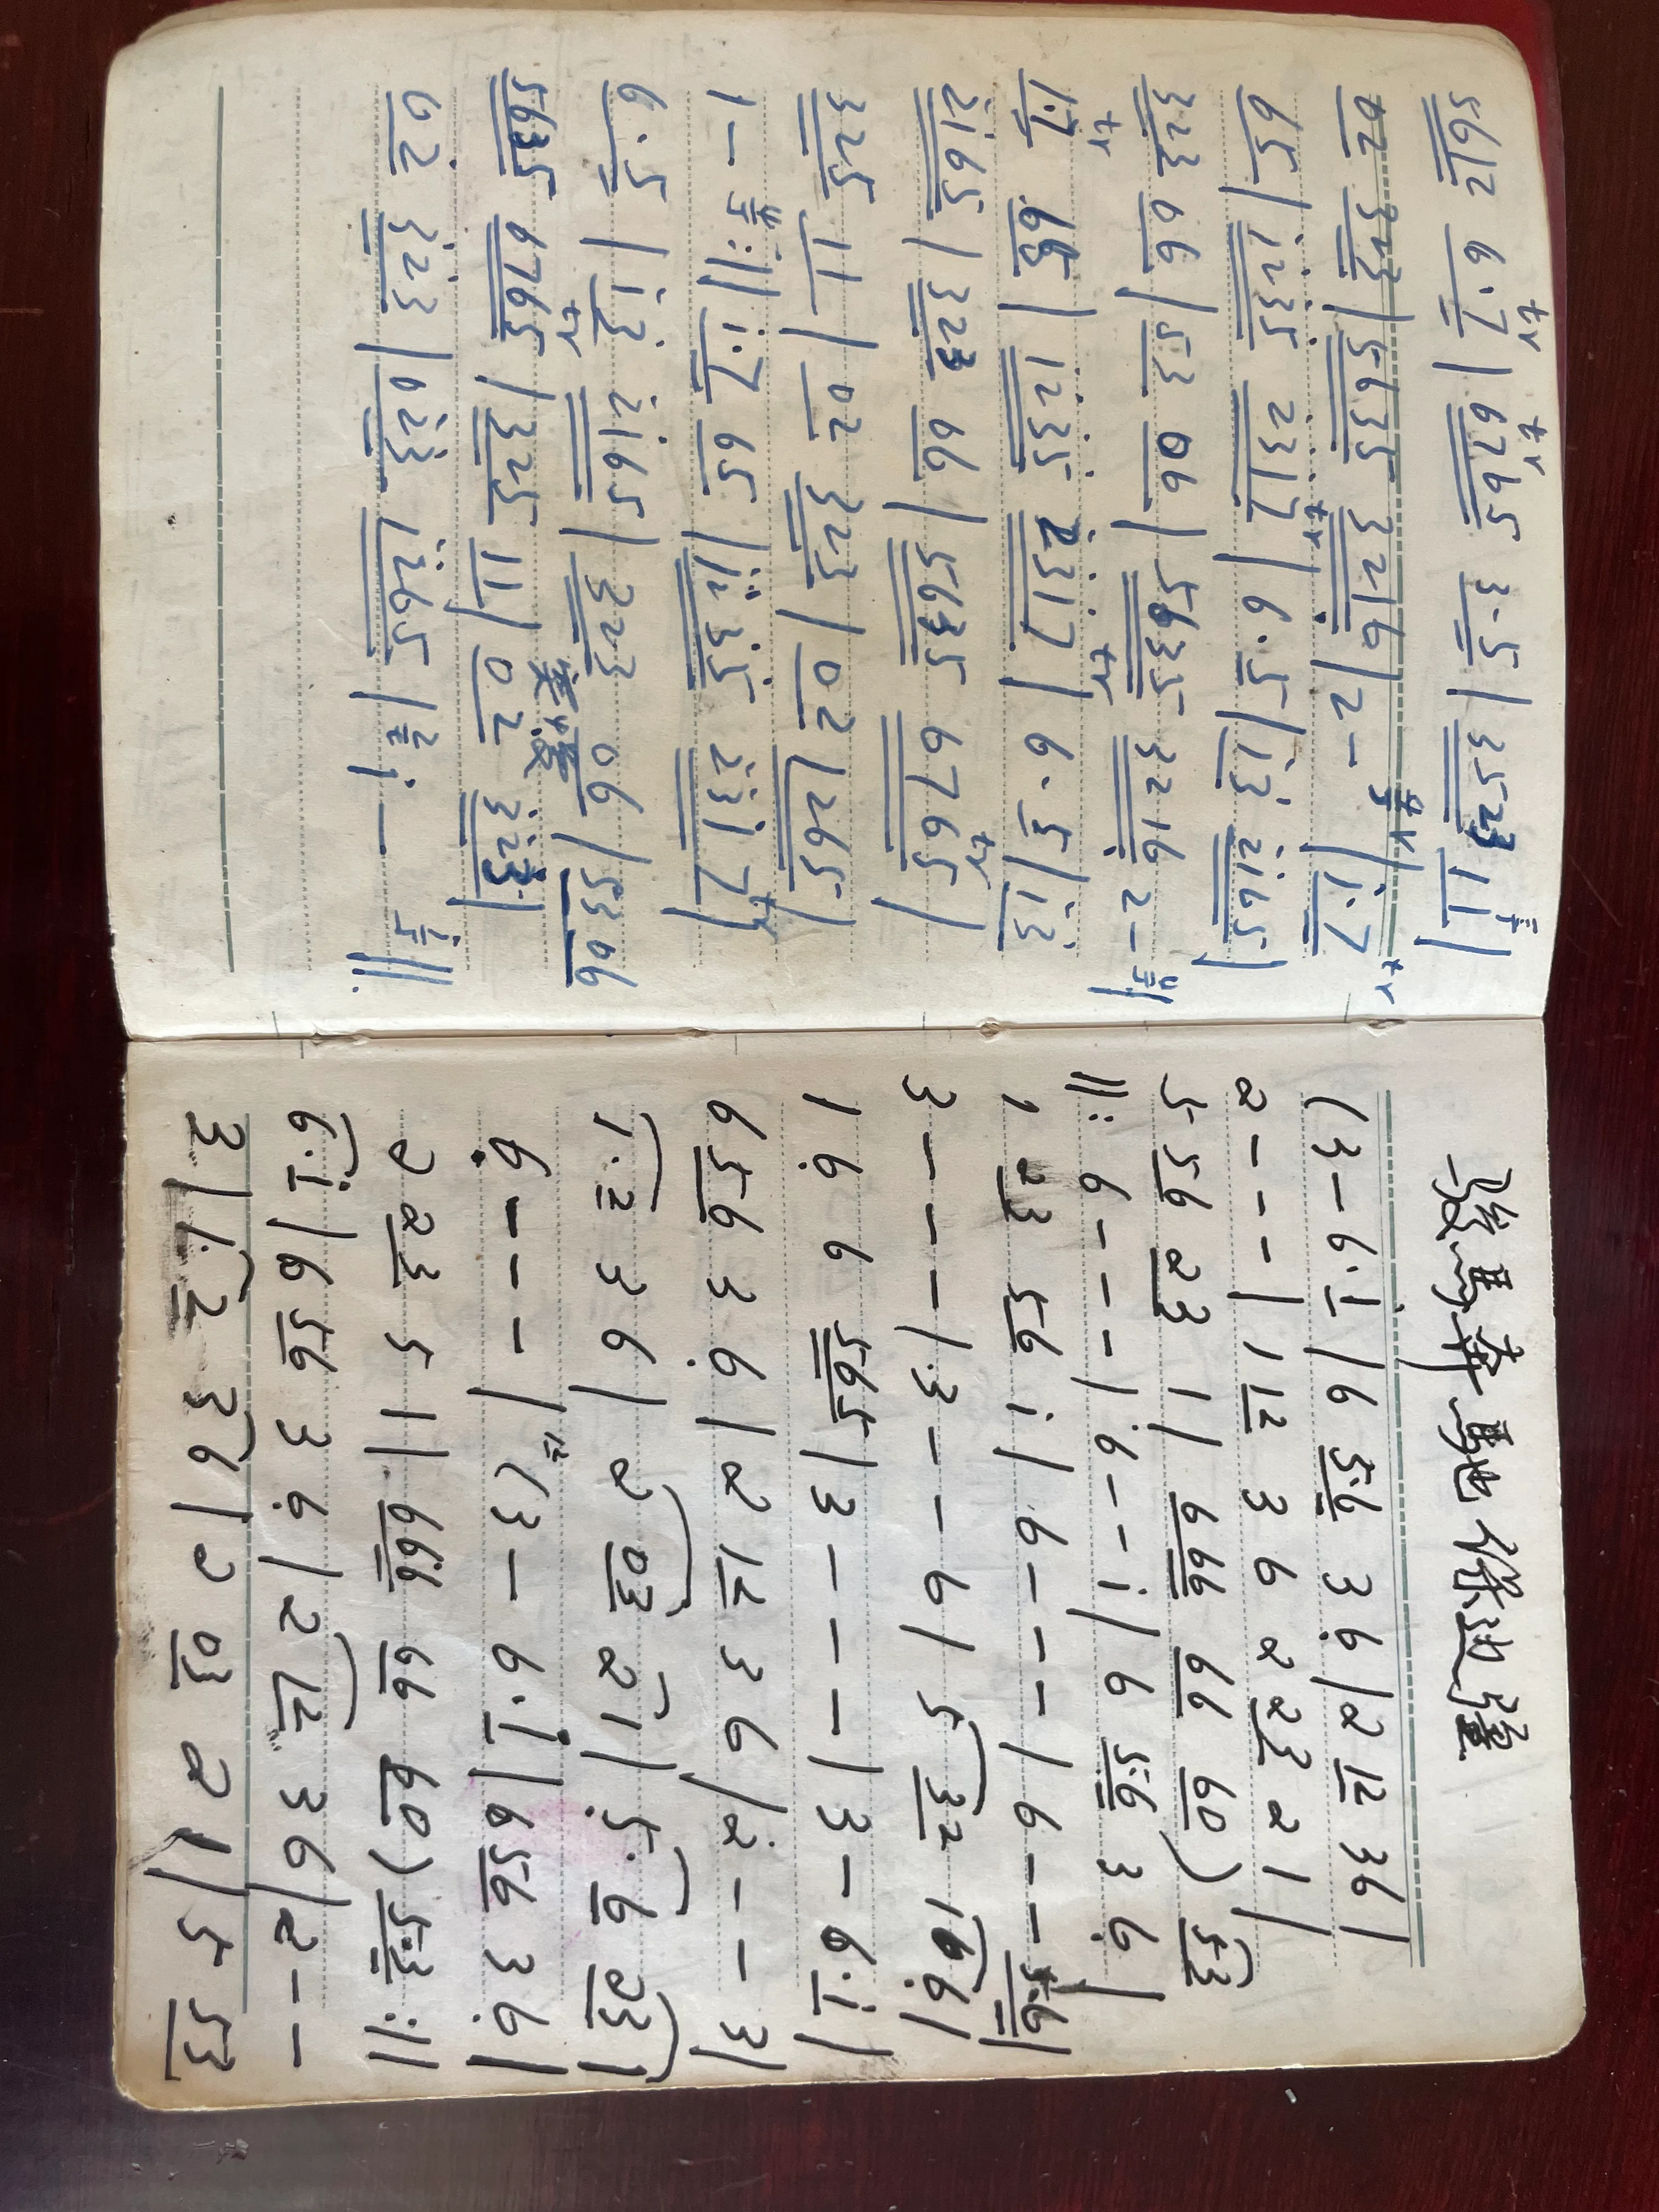 5612 6·7 tr | 6765 tr 3·5 | 3523 11 |
02 323 | 5635 3216 | 2 - | 1·7 tr
65 | i235 2317 tr | 6·5 | 13 2165 |
323 06 | 53 06 | 5635 3216 2 - |
1·7 tr 65 | 1235 2317 tr | 6·5 | 13
2165 | 323 66 | 5635 6765 tr |
325 11 | 02 323 | 02 | 1265 |
1 - :|| i·7 65 | i235 2317 tr |
6·5 | i3 2165 | 323 06 | 53 06
5635 6765 tr | 325 11 | 02 323 |
02 323 | 023 1265 | i - ||
駿馬奔馳保边疆
(3 - 6·i | 6 5·6 3 6 | 2 12 3 6 |
2 - - - | 1 12 3 6 2 23 2 1 |
5 56 23 1 | 666 66 60) 53
||: 6 - - - | 6 - - i | 6 5·6 3 6 |
1 23 56 i | 6 - - - | 6 - - 5·6 |
3 - - - | 3 - - 6 | 5 32 1 6 |
1 6 6 565 | 3 - - - | 3 - 6·i |
6 56 3 6 | 2 12 3 6 | 2 - - 3 |
1·2 3 6 | 2 03 2 1 | 5·6 23 |
6 - - - | (3 - 6·i | 6 56 3 6 |
2 23 5 1 | 666 66 60) 5·3 :||
6·i | 6 56 3 6 | 2 12 3 6 | 2 - -
3 | 1·2 3 6 | 2 03 2 1 | 5 53